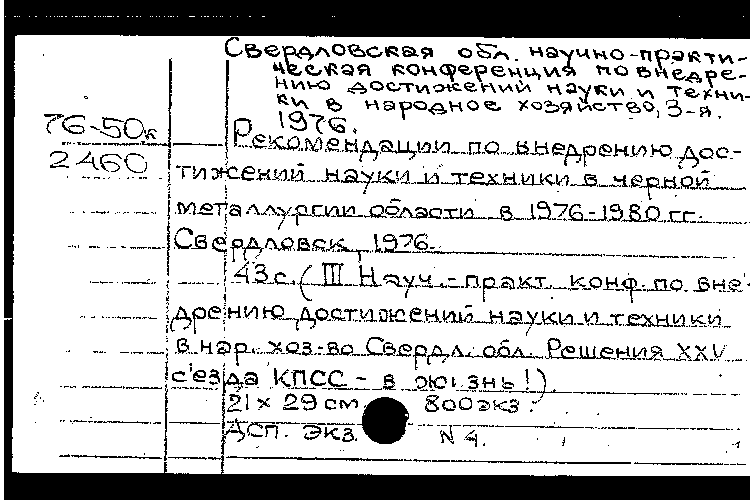 Свердловская обл. научно-практи-
ческая конференция по внедре-
нию достижений науки и техни-
ки в народное хозяйство, 3-я.
1976.
76-50к
2460
Рекомендации по внедрению дос-
тижений науки и техники в черной
металлургии области в 1976-1980 гг.
Свердловск, 1976.
43 с. (III Науч.-практ. конф. по вне-
дрению достижений науки и техники
в нар. хоз-во Свердл. обл. Решения XXV
с'езда КПСС - в жизнь!).
21 x 29 см 800 экз.
ДСП. экз. N 4.